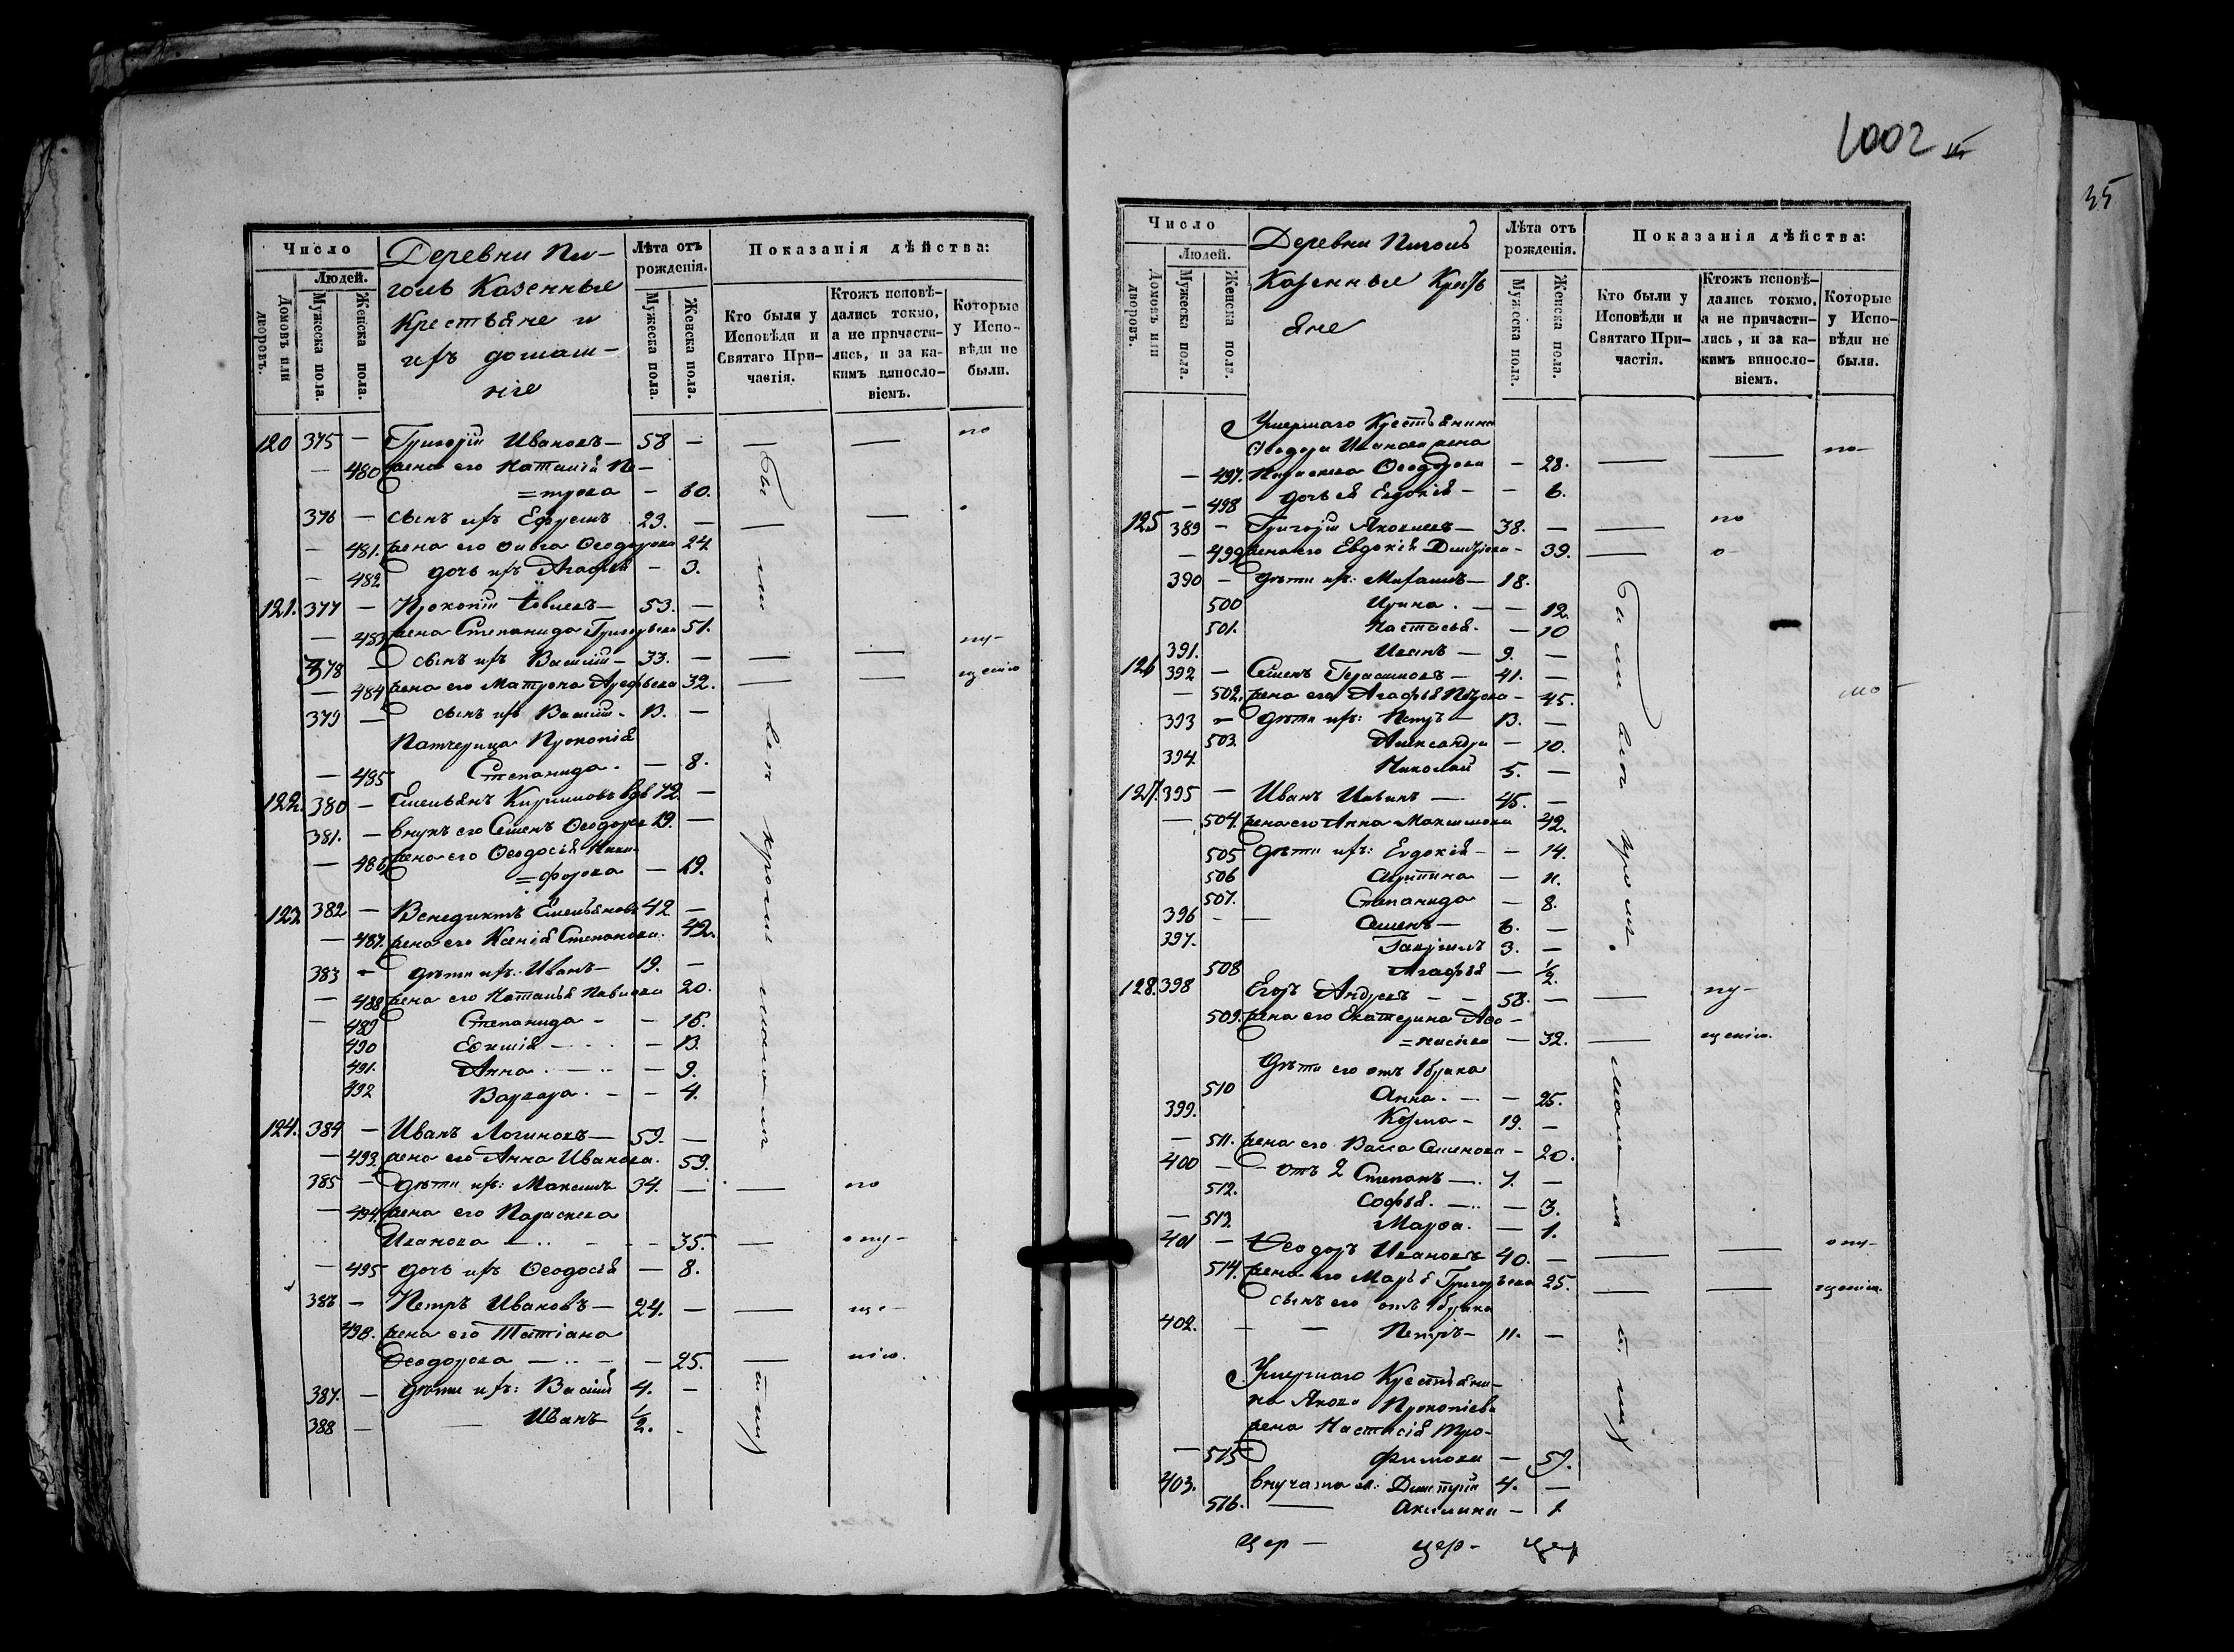 1002
35
Число
Людей.
Домовъ или дворовъ.
Мужеска пола.
Женска пола.
Деревни Пи-
голь Казенные
Крестьяне и
ихъ домаш-
ніе
Лѣта отъ рожденія.
Мужеска пола.
Женска пола.
Показанія дѣйства:
Кто были у Исповѣди и Святаго Причастія.
Ктожъ исповѣдались токмо, а не причастились, и за какимъ винословіемъ.
Которые у Исповѣди не были.
120 375 — Григорій Ивановъ — 58 — по
— 480 жена его Наталія Пе-
=трова — 60.
376 — сынъ ихъ Ефремъ 23. —
— 481. жена его Ольга Ѳеодорова 24
— 482 дочь ихъ Агафія — 3.
121. 377 — Прокопій — 53. —
— 483 жена Степанида Григорьева 51.
378 — сынъ ихъ Василій — 33. — — — пу-
— 484 жена его Матрона Арефьева 32. — — щенію
379 — сынъ ихъ Василій — 13. —
Патчерица Прокопія
— 485 Степанида. — 8.
122. 380 — Емельянъ Кириловъ вдв 72 —
381. — внукъ его Семенъ Ѳеодоров 19. —
— 486 жена его Ѳеодосія Ники-
=форова — 19.
123 382 — Венедиктъ Емельяновъ 42 —
— 487. жена его Ксенія Степанова. 42.
383 — дѣти ихъ: Иванъ — 19. —
— 488 жена его Наталья Павлова 20.
— 489 Степанида — — 16.
490 Евѳимія — — 13.
491. Анна. — — 9.
492 Варвара. — — 4.
124. 384 — Иванъ Логиновъ — 59. —
— 493. жена его Анна Иванова. 59.
385 — дѣти ихъ: Максимъ 34. — — по
— 494. жена его Параскева
Иванова — — 35. — опу-
— 495 дочь ихъ Ѳеодосія — 8.
386 — Петръ Ивановъ — 24. — — ще-
498. жена его Татіана
Ѳеодорова — — 25. — нію.
387. — дѣти ихъ: Василій 4. —
388 — Иванъ 1/2.
Были вси кромѣ малолѣтнихъ
Число
Людей.
Домовъ или дворовъ.
Мужеска пола.
Женска пола.
Деревни Пиголь
Казенные Кресть
яне
Лѣта отъ рожденія.
Мужеска пола.
Женска пола.
Показанія дѣйства:
Кто были у Исповѣди и Святаго Причастія.
Ктожъ исповѣдались токмо, а не причастились, и за какимъ винословіемъ.
Которые у Исповѣди не были.
Умершаго Крестьянина
Ѳеодора Иванова жена
— 497. Параскева Ѳеодорова — 28. — — по-
— 498 дочь ея Евдокія — — 6.
125 389 — Григорій Яковлевъ — 38. — — по
— 499 жена его Евдокія Димтріева — 39. — о-
390 — дѣти ихъ: Михаилъ — 18.
500 Ирина. — — 12.
501. Настасья. — 10
391. Иванъ — 9. —
126 392 — Семенъ Герасимовъ — 41. —
— 502. жена его Агафья Петрова — 45.
393 — дѣти ихъ: Петръ — 13. —
503. Александра — 10.
394. Николай 5. —
127. 395 — Иванъ — 45. —
— 504. жена его Анна Максимова 42.
505 дѣти ихъ: Евдокія — — 14.
506 Агрипина — 11.
507. Степанида — 8.
396 — — Семенъ — 6. —
397. Гавріилъ 3. —
508 Агафья — 1/2.
128. 398 Егоръ Андреевъ — — 58. — — пу-
509. жена его Екатерина Аѳо-
=насіева — 32. — щенію.
Дѣти его отъ 1 брака
510 Анна. — — 25.
399. Козма — 19. —
— 511. жена его Васса Семенова — 20.
400 — — отъ 2 Степанъ — 7. —
512. Софья. — — 3.
— 513. Марѳа. — 1.
401 — Ѳеодоръ Ивановъ 40. — — — опу-
514. жена его Марья Григорьева 25. — — щенію.
сынъ его отъ 1 брака
402. — — Петръ — 11. —
Умершаго Крестьяни-
на Якова Прокопіева
жена Настасія Тро-
— 515 фимова — 57.
403. внучата ея: Димитрій 4. —
516. — Акилина — 1
Были вси кромѣ малолѣтнихъ
цер — цер — цер